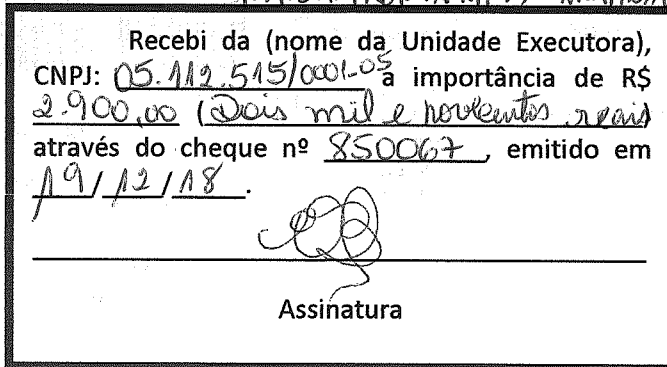 Recebi da (nome da Unidade Executora),
CNPJ: 05.112.515/0001-05 a importância de R$
2.900,00 (Dois mil e novecentos reais)
através do cheque nº 850067, emitido em
19/12/18.
Assinatura